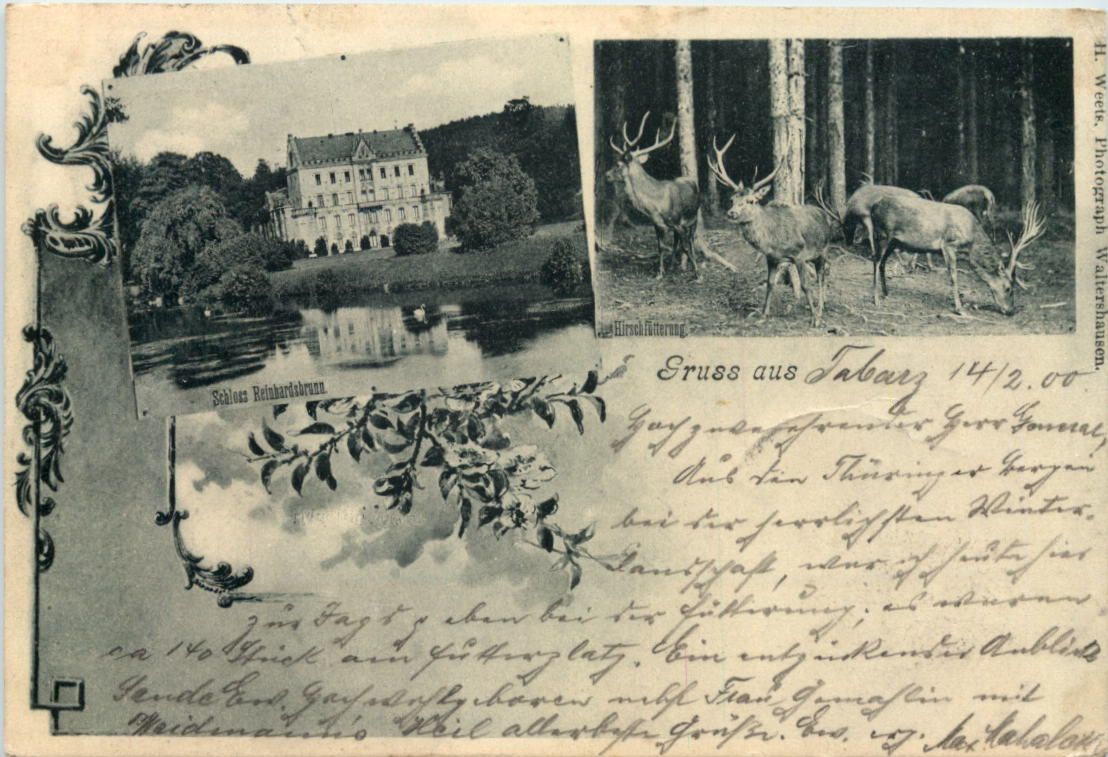 Schloss Reinhardsbrunn.
Hirschfütterung.
H. Weets, Photograph Waltershausen.
Gruss aus Tabarz 14/2.00
Hochzuverehrender Herr General,
Aus den Thüringer Bergen
bei der herrlichsten Winter-
landschaft, war ich heute hier
zur Jagd & eben bei der Fütterung; es waren
ca 140 Stück am Futterplatz. Ein entzückender Anblick
Sende Ew. Hochwohlgeboren nebst Frau Gemahlin mit
Weidmanns Heil allerbeste Grüße. Ew. erg. Max